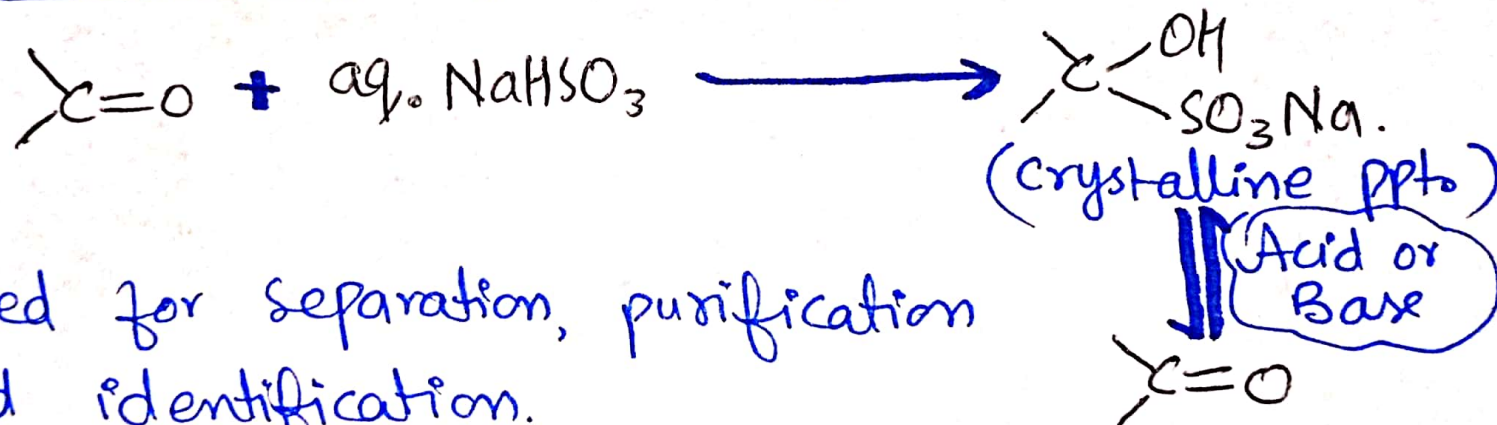 >C=O + aq. NaHSO₃ ⟶ >C
OH
SO₃Na.
(crystalline ppt.)
Acid or
Base
ed for separation, purification
d identification.
>C=O